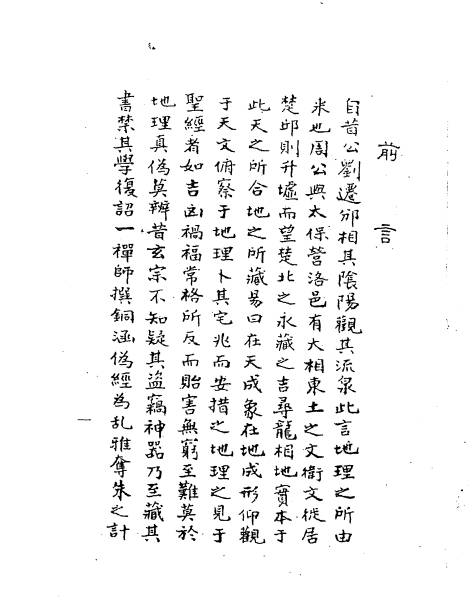 前言
自昔公劉遷邠相其陰陽觀其流泉此言地理之所由
來也周公與太保營洛邑有大相東土之文衛文徙居
楚邱則升墟而望楚北之永藏之吉尋龍相地實本于
此天之所合地之所藏易曰在天成象在地成形仰觀
于天文俯察于地理卜其宅兆而安措之地理之見于
聖經者如吉凶禍福常格所反而貽害無窮至難莫於
地理真偽莫辨昔玄宗不知疑其盜竊神器乃至藏其
書禁其學復詔一禪師撰銅涵偽經為乱雅奪朱之計
一